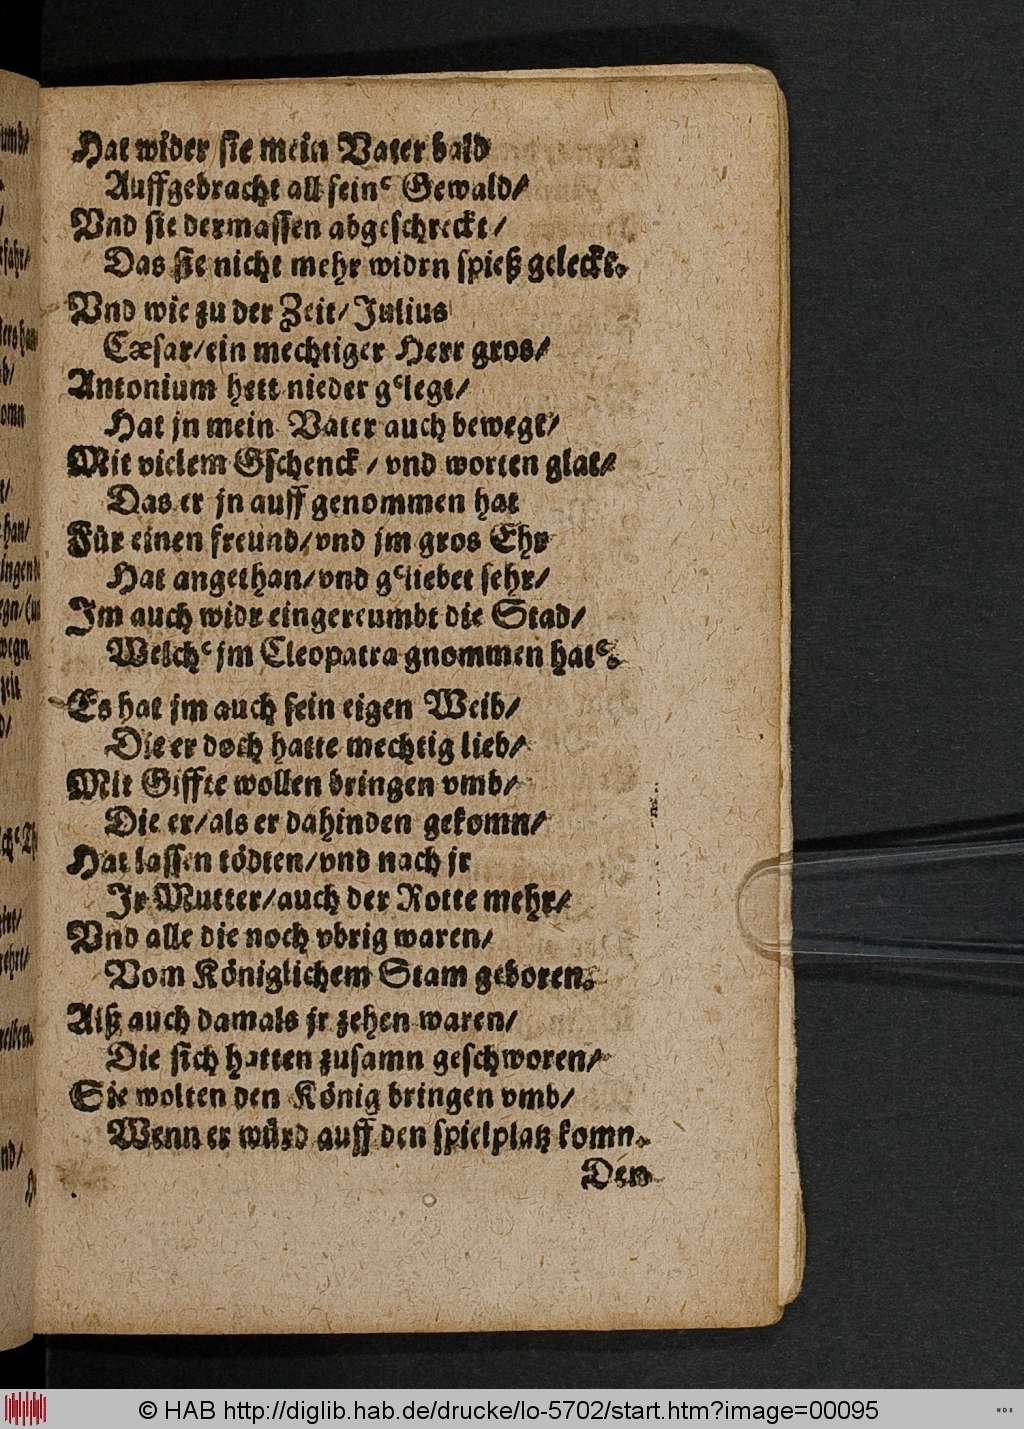 Hat wider sie mein Vater bald
Auffgebracht all seinᵉ Gewald/
Vnd sie dermassen abgeschreckt/
Das sie nicht mehr widrn spieß geleckt.
Vnd wie zu der Zeit/ Julius
Cæsar/ ein mechtiger Herr gros/
Antonium hett nieder gᵉlegt/
Hat jn mein Vater auch bewegt/
Mit vielem Gschenck / vnd worten glat/
Das er jn auff genommen hat
Für einen freund/ vnd jm gros Ehr
Hat angethan/ vnd gᵉliebet sehr/
Im auch widr eingereumbt die Stad/
Welchᵉ jm Cleopatra gnommen hatᵉ.
Es hat jm auch sein eigen Weib/
Die er doch hatte mechtig lieb/
Mit Giffte wollen bringen vmb/
Die er/ als er dahinden gekomn/
Hat lassen tödten/ vnd nach jr
Jr Mutter/ auch der Rotte mehr/
Vnd alle die noch vbrig waren/
Vom Königlichem Stam geboren.
Alß auch damals jr zehen waren/
Die sich hatten zusamn geschworen/
Sie wolten den König bringen vmb/
Wenn er würd auff den spielplatz komn.
Den
© HAB http://diglib.hab.de/drucke/lo-5702/start.htm?image=00095